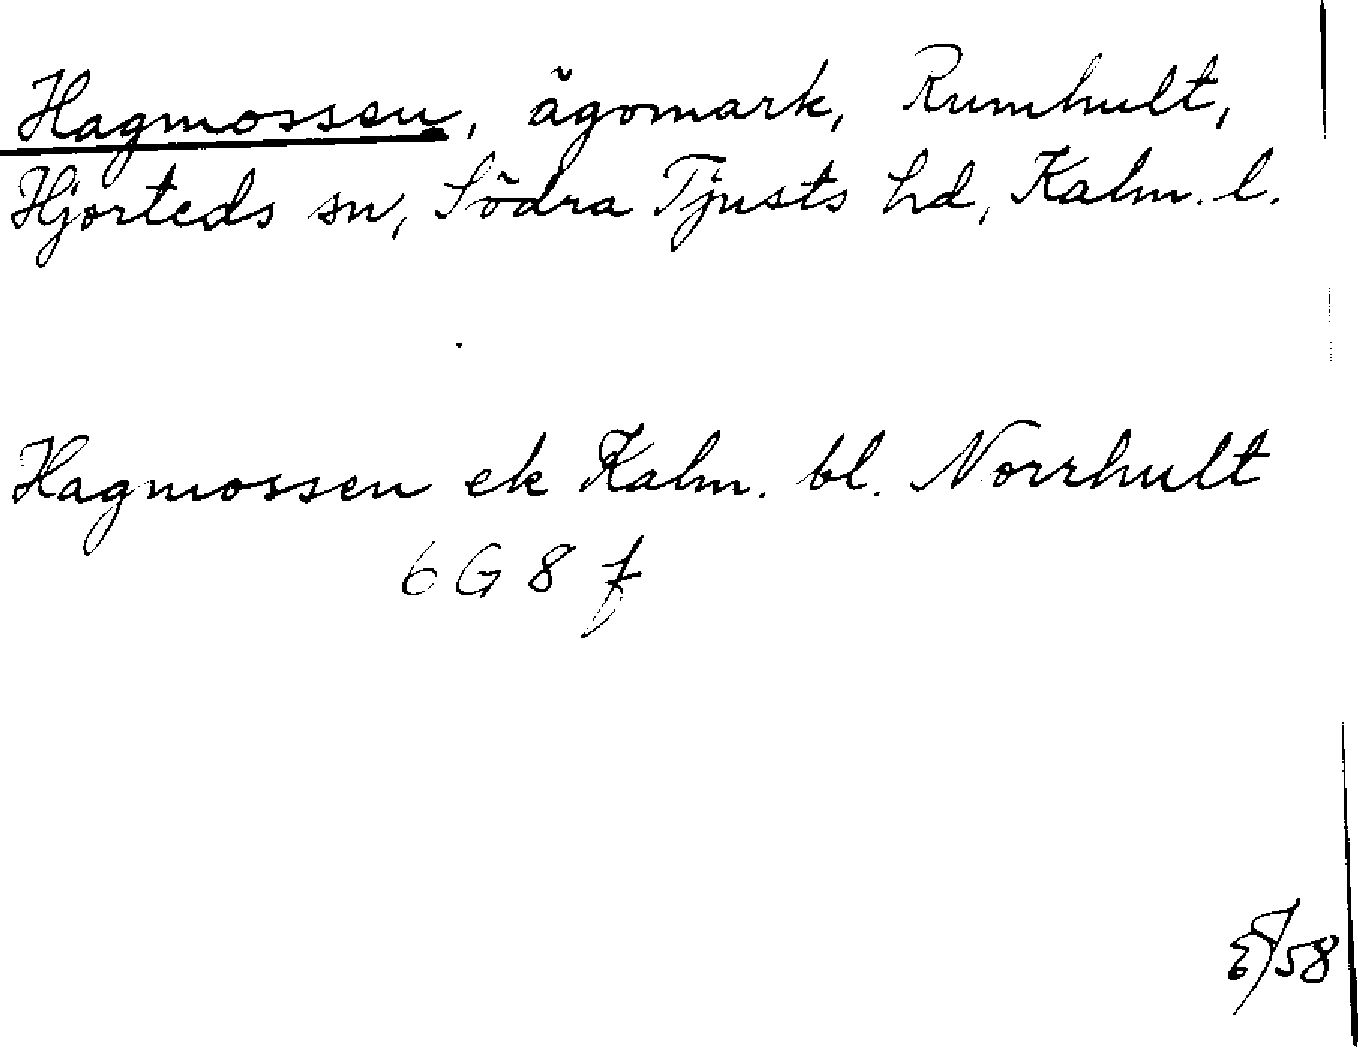 Hagmossen, ägomark, Rumhult,
Hjorteds sn, Södra Tjusts hd, Kalm. l.
Hagmossen ek Kalm. bl. Norrhult
6 G 8 f
58